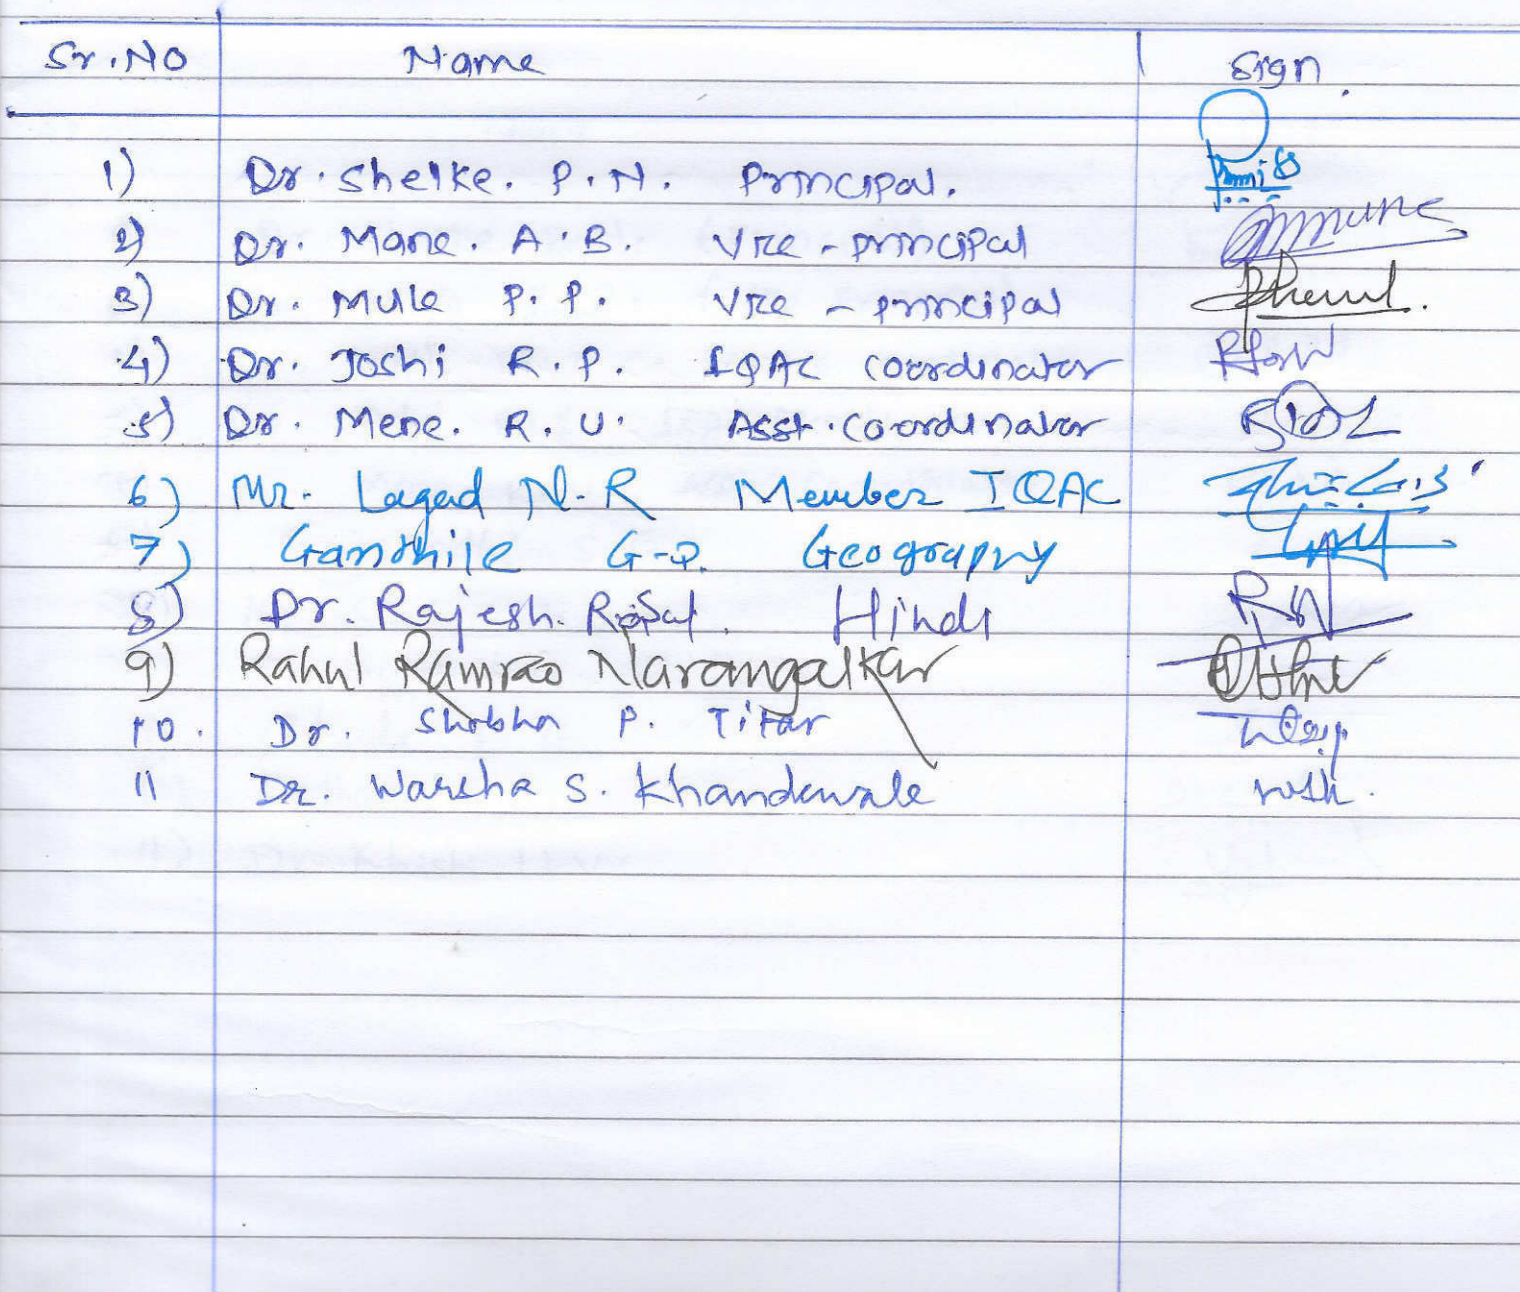 Sr.No Name Sign.
1) Dr. Shelke. P.N. Principal.
2) Dr. Mane. A.B. Vice-principal
3) Dr. Mule P.P. Vice-principal
4) Dr. Joshi R.P. IQAC coordinator
5) Dr. Mene. R.U. Asst. coordinator
6) Mr. Lagad N.R Member IQAC
7) Geography
8) Dr. Rajesh. Hindi
9) Rahul Ramrao Narangalkar
10. Dr. Shobha P. Titar
11 Dr. Warsha S. Khandewale